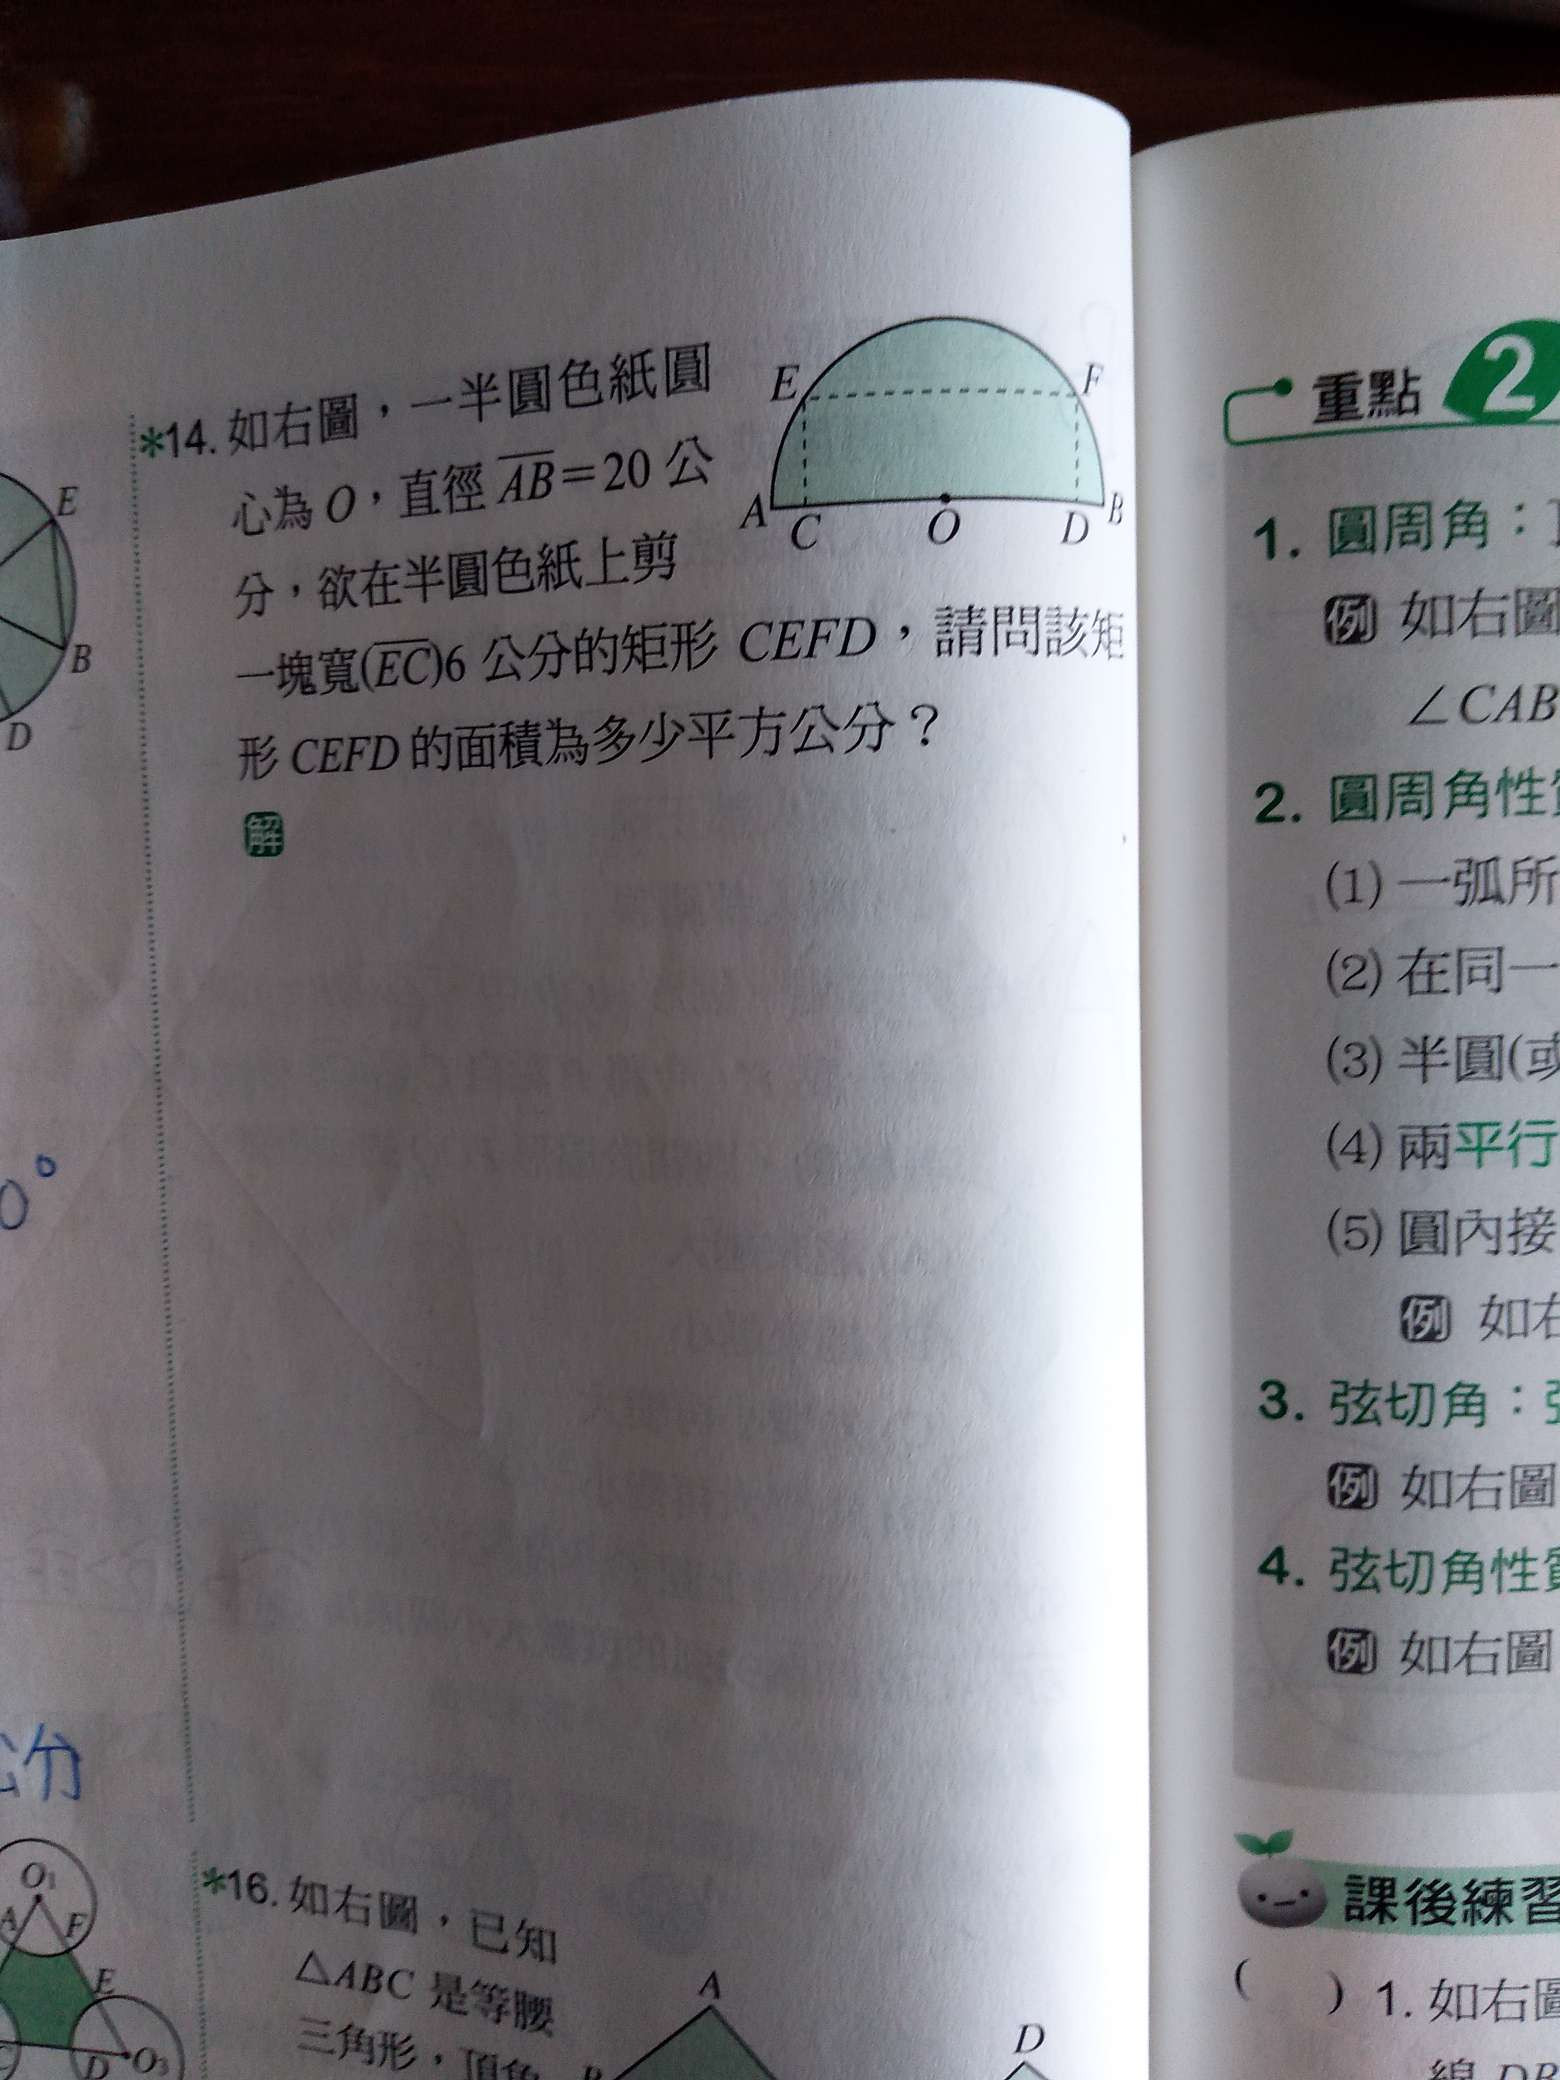 *14. 如右圖，一半圓色紙圓
心為 O，直徑 AB=20 公
分，欲在半圓色紙上剪
一塊寬(EC)6 公分的矩形 CEFD，請問該矩
形 CEFD 的面積為多少平方公分？
解
E
F
A
C
O
D
B
E
B
D
0°
公分
O₁
A
F
E
D
O₃
*16. 如右圖，已知
△ABC 是等腰
三角形，頂角
A
B
D
重點 2
1. 圓周角：
例 如右圖
∠CAB
2. 圓周角性質
(1) 一弧所
(2) 在同一
(3) 半圓(或
(4) 兩平行
(5) 圓內接
例 如右
3. 弦切角：
例 如右圖
4. 弦切角性質
例 如右圖
課後練習
( ) 1. 如右圖
線 DB